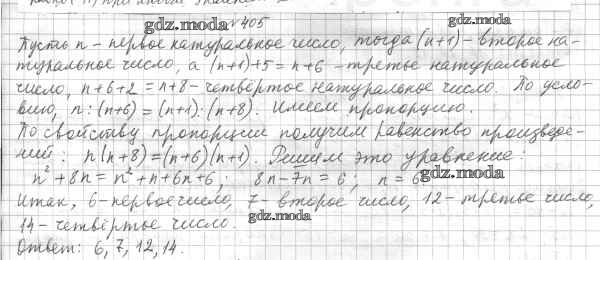 gdz.moda №405
Пусть n - первое натуральное число, тогда (n+1) - второе на-
туральное число, а (n+1)+5 = n+6 - третье натуральное
число, n+6+2 = n+8 - четвёртое натуральное число. По усло-
вию, n:(n+6) = (n+1):(n+8). Имеем пропорцию.
gdz.moda
По свойству пропорции получим равенство произведе-
ний: n(n+8)=(n+6)(n+1). Решаем это уравнение:
n²+8n = n²+n+6n+6; 8n-7n = 6; n = 6 gdz.moda
Итак, 6-первое число, 7 - второе число, 12 - третье число,
14 - четвёртое число. gdz.moda
Ответ: 6, 7, 12, 14.